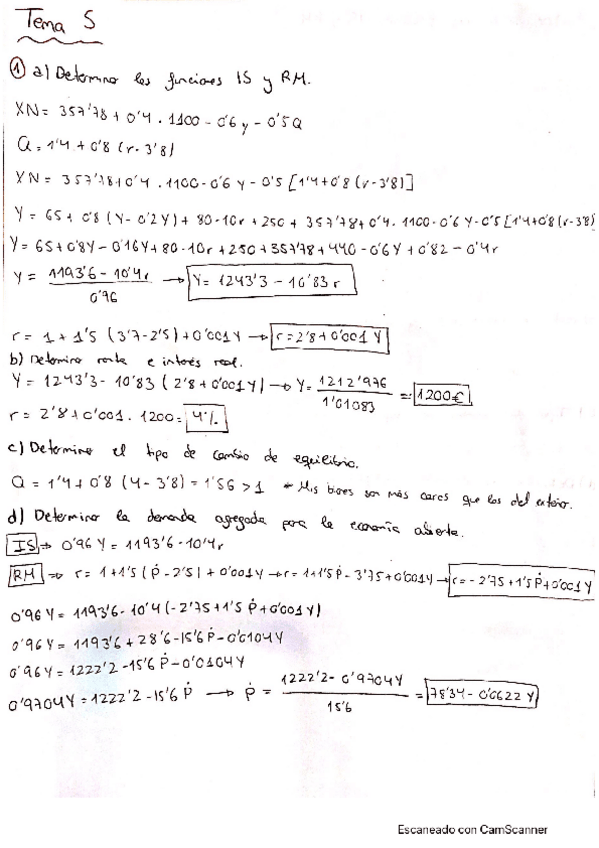 Tema 5
① a) Determina las funciones IS y RM.
XN = 357'78 + 0'4 · 1100 - 0'6 y - 0'5 Q
Q = 1'4 + 0'8 (r - 3'8)
XN = 357'78 + 0'4 · 1100 - 0'6 y - 0'5 [1'4 + 0'8 (r - 3'8)]
Y = 65 + 0'8 (Y - 0'2Y) + 80 - 10r + 250 + 357'78 + 0'4 · 1100 - 0'6 Y - 0'5 [1'4 + 0'8 (r - 3'8)
Y = 65 + 0'8Y - 0'16Y + 80 - 10r + 250 + 357'78 + 440 - 0'6Y + 0'82 - 0'4r
Y = 1193'6 - 10'4r / 0'96 → Y = 1243'3 - 10'83 r
r = 1 + 1'5 (3'7 - 2'5) + 0'001Y → r = 2'8 + 0'001 Y
b) Determina renta e interés real.
Y = 1243'3 - 10'83 (2'8 + 0'001Y) → Y = 1212'976 / 1'01083 = 1200€
r = 2'8 + 0'001 · 1200 = 4%
c) Determine el tipo de cambio de equilibrio.
Q = 1'4 + 0'8 (4 - 3'8) = 1'56 > 1 * Mis bienes son más caros que los del exterior.
d) Determina la demanda agregada para la economía abierta.
IS ⇒ 0'96 Y = 1193'6 - 10'4r
RM ⇒ r = 1 + 1'5 (Ṗ - 2'5) + 0'001Y → r = 1 + 1'5Ṗ - 3'75 + 0'001Y → r = -2'75 + 1'5Ṗ + 0'001 Y
0'96 Y = 1193'6 - 10'4 (-2'75 + 1'5 Ṗ + 0'001 Y)
0'96 Y = 1193'6 + 28'6 - 15'6 Ṗ - 0'0104Y
0'96 Y = 1222'2 - 15'6 Ṗ - 0'0104Y
0'9704Y = 1222'2 - 15'6 Ṗ → Ṗ = 1222'2 - 0'9704Y / 15'6 = 78'34 - 0'0622 Y
Escaneado con CamScanner